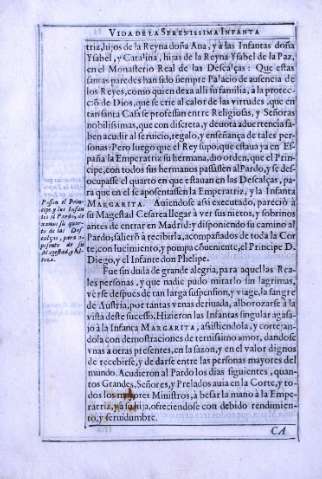 VIDA DE LA SERENISSIMA INFANTA
triz, hijos de la Reyna doña Ana, y à las Infantas doña
Ysabel, y Catalina, hijas de la Reyna Ysabel de la Paz,
en el Monasterio Real de las Descalças: Que estas
santas paredes han sido siempre Palacio de ausencia de
los Reyes, como quien dexa alli su familia, à la protec-
ció de Dios, que se crie al calor de las virtudes, que en
tan santa Casa se professan entre Religiosas, y Señoras
nobilissimas, que con discreta, y denota aduertencia sa-
ben acudir al seruicio, regalo, y enseñança de tales per-
sonas: Pero luego que el Rey supo, que estaua ya en Es-
paña la Emperatriz su hermana, dio orden, que el Prin-
cipe, con todos sus hermanos passassen al Pardo, y se des-
ocupasse el quarto en que estauan en las Descalças, pa-
ra que en el se aposentassen la Emperatriz, y la Infanta
MARGARITA. Auiendose assi executado, pareciò à
su Magestad Cesarea llegar à ver sus nietos, y sobrinos
antes de entrar en Madrid: y disponiendo su camino al
Pardo, salierõ à recibirla, acompañados de toda la Cor
te, con lucimiento, y pompa cõueniente, el Principe D.
Diego, y el Infante don Phelipe.
Passan el Prin-
cipe, y los Infan
tes al Pardo, de
xando su quar-
to de las Des
calças, para a-
posento de su
Magestad, y Al-
teza.
Fue sin duda de grande alegria, para aquellas Rea-
les personas, y que nadie pudo mirarlo sin lagrimas,
verse despues de tan larga suspension, y viage, la sangre
de Austria, por tantas venas deriuada, alborozarse à la
vista deste sucesso. Hizieron las Infantas singular agasa-
jo à la Infanta MARGARITA, asistiendola, y cortejan-
dola con demostraciones de ternissimo amor, dandose
vnas a otras presentes, en la sazon, y en el valor dignos
de recebirse, y de darse entre las personas mayores del
mundo. Acudieron al Pardo los dias siguientes, quan-
tos Grandes, Señores, y Prelados auia en la Corte, y to-
dos los mayores Ministros, à besar la mano à la Empe-
ratriz, y a su hija, ofreciendose con debido rendimien-
to, y seruidumbre.
CA